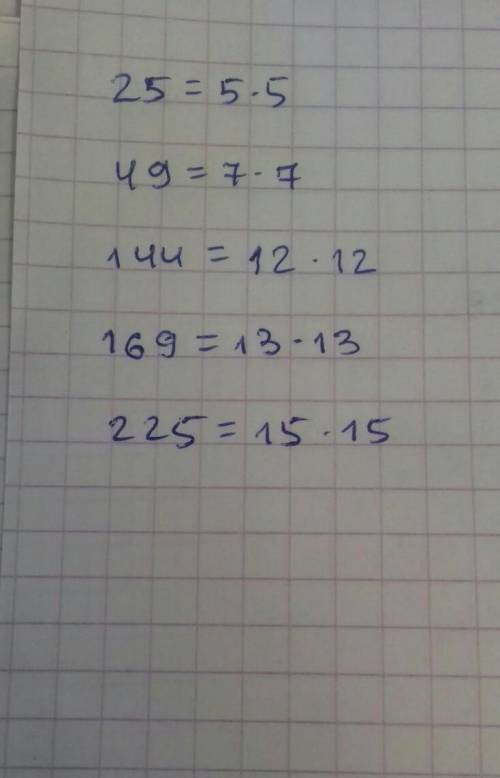 25 = 5 · 5
49 = 7 · 7
144 = 12 · 12
169 = 13 · 13
225 = 15 · 15